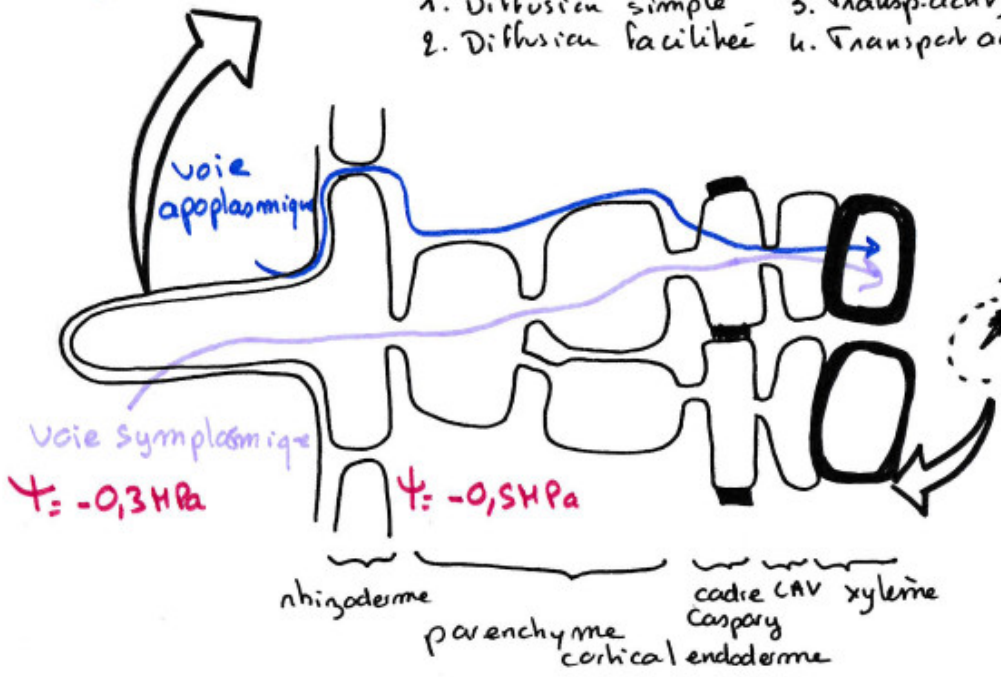 1. Diffusion simple 3. Transp. activ
2. Diffusion facilitée 4. Transport ac
voie
apoplasmique
voie symplasmique
Ψ = -0,3 MPa
Ψ = -0,5 MPa
rhizoderme
parenchyme
cortical
cadre
Caspary
endoderme
CAV
xylème